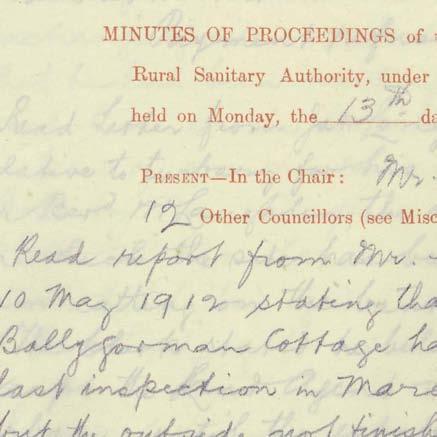 MINUTES OF PROCEEDINGS of t
Rural Sanitary Authority, under
held on Monday, the 13th da
PRESENT—In the Chair: Mr.
12 Other Councillors (see Misc
Read report from Mr.
10 May 1912 stating tha
Ballygorman Cottage ha
last inspection in Marc
but the outside not finish